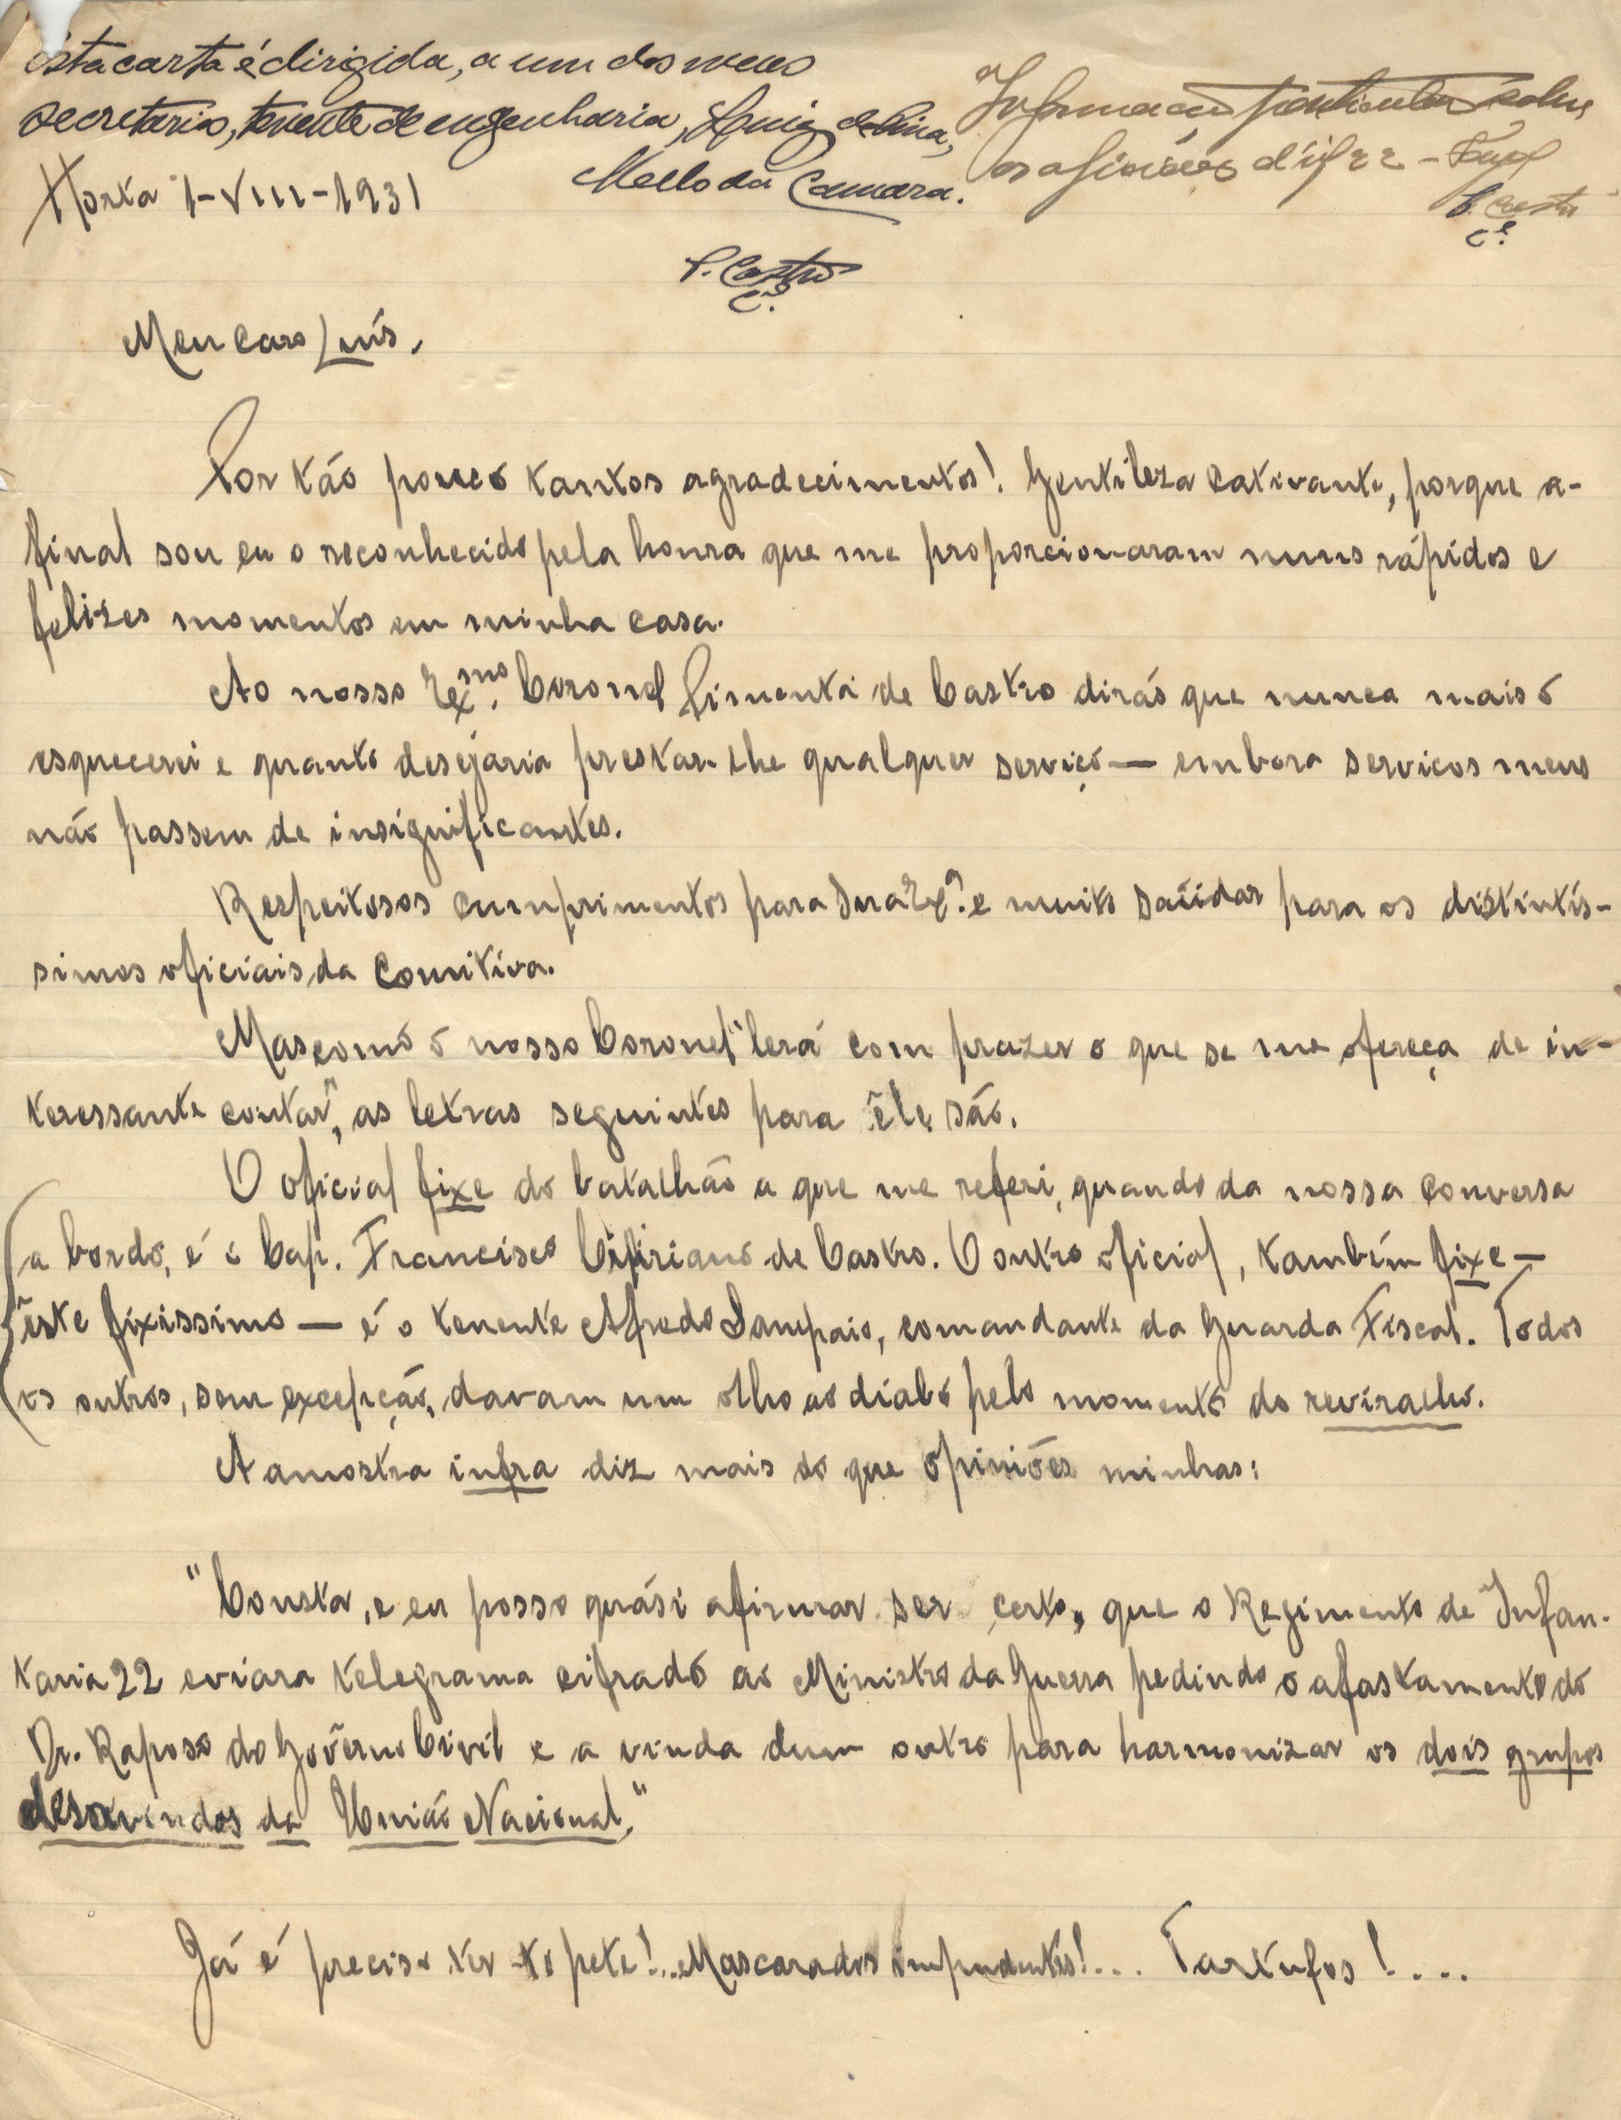 Esta carta é dirigida, a um dos meus
secretarios, tenente de engenharia, Luiz de Lima,
Mello da Camara.
P. Castro
C.el
Informação particular sobre
os oficiáes d'if 22 -
P. Castro
C.el
Horta 1-VIII-1931
Meu caro Luís,
Por tão pouco tantos agradecimentos! Gentileza cativante, porque a-
final sou eu o reconhecido pela honra que me proporcionaram nuns rápidos e
felizes momentos em minha casa.
Ao nosso Ex.mo Coronel Pimenta de Castro dirás que nunca mais o
esquecerei e quanto desejaria prestar-lhe qualquer serviço — embora serviços meus
não passem de insignificantes.
Respeitosos cumprimentos para Sua Ex.ª e muito saüdar para os distintís-
simos oficiais da Comitiva.
Mas como o nosso Coronel "lerá com prazer o que se me ofereça de in-
teressante contar", as letras seguintes para êle são.
O oficial fixe do batalhão a que me referi, quando da nossa conversa
a bordo, é o Cap. Francisco Cipriano de Castro. O outro oficial, também fixe —
êste fixissimo — é o tenente Alfredo Sampaio, comandante da Guarda Fiscal. Todos
os outros, sem excepção, davam um olho ao diabo pelo momento do reviralho.
A amostra infra diz mais do que opiniões minhas:
"Consta, e eu posso quási afirmar ser certo, que o Regimento de Infan-
taria 22 eviara telegrama cifrado ao Ministro da Guerra pedindo o afastamento do
Dr. Raposo do Govêrno Civil e a vinda dum outro para harmonizar os dois grupos
desavindos da União Nacional,"
Já é preciso ter topete!... Mascarados impudentes!... Tartufos!....